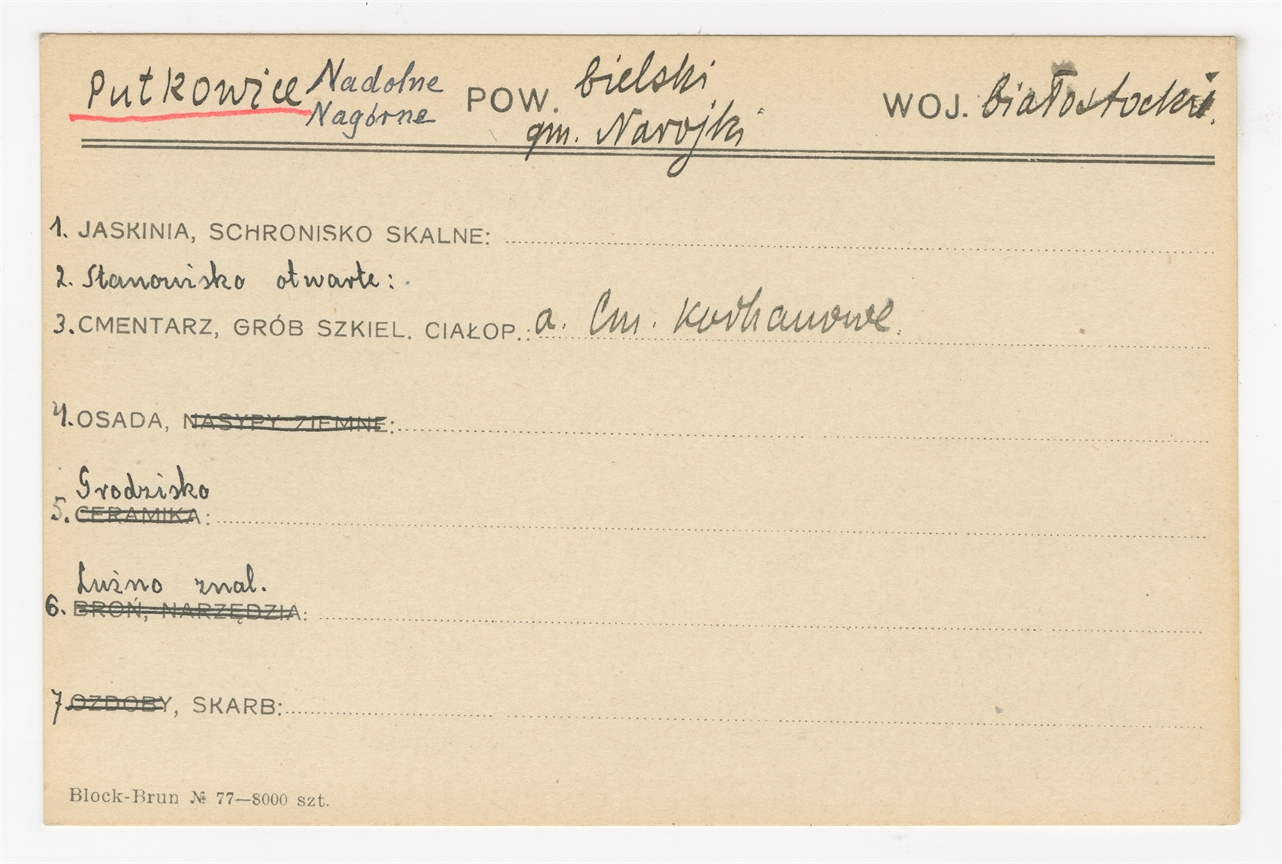 Putkowice Nadolne POW. bielski WOJ. białostocki.
Nagórne gm. Narojki
1. JASKINIA, SCHRONISKO SKALNE:
2. Stanowisko otwarte:
3. CMENTARZ, GRÓB SZKIEL. CIAŁOP.: a. Cm. kurhanowe.
4. OSADA, NASYPY ZIEMNE:
Grodzisko
5. CERAMIKA:
Luźno znal.
6. BROŃ, NARZĘDZIA:
7 OZDOBY, SKARB:
Block-Brun № 77—8000 szt.